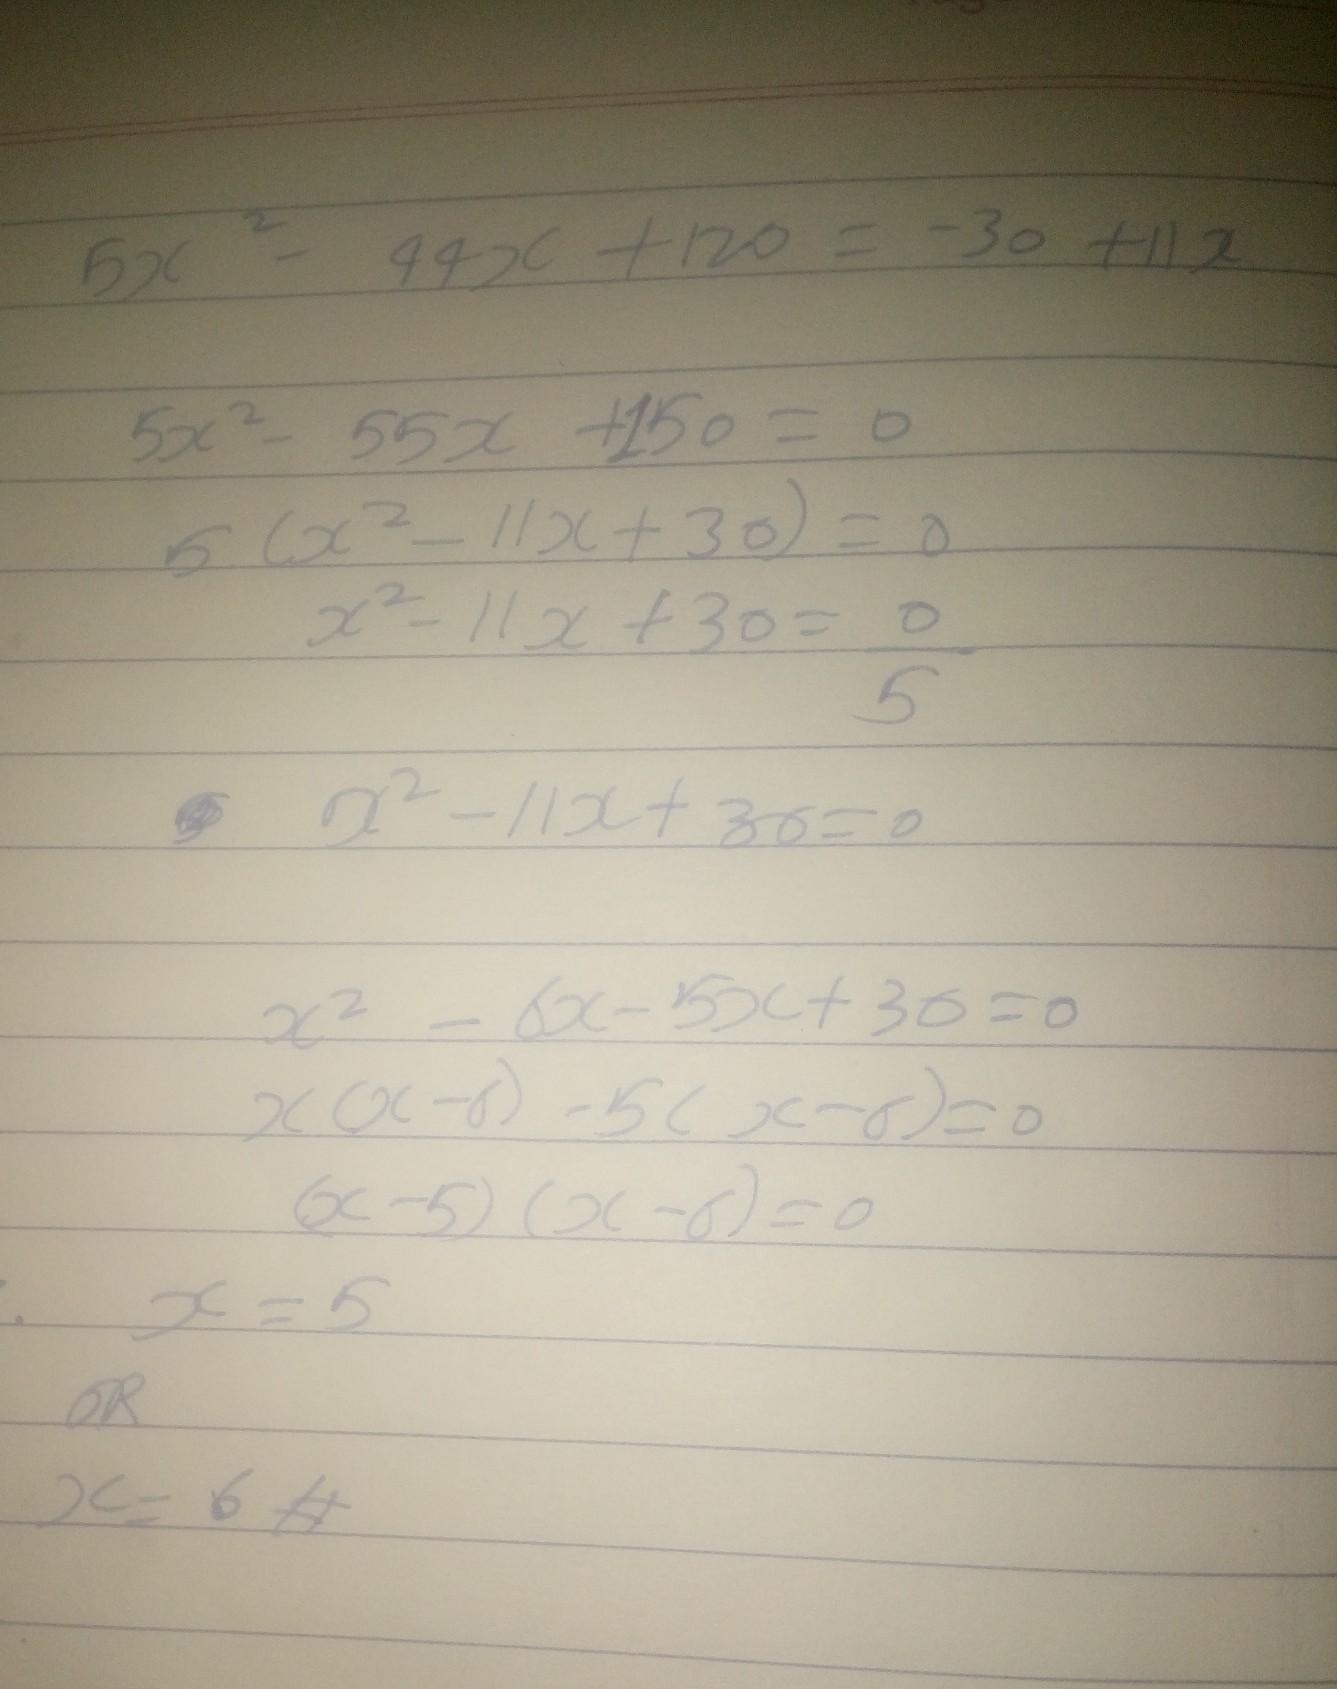 5x² - 44x + 120 = -30 + 11x
5x² - 55x + 150 = 0
5 (x² - 11x + 30) = 0
x² - 11x + 30 = 0/5
x² - 11x + 30 = 0
x² - 6x - 5x + 30 = 0
x (x - 6) - 5 (x - 6) = 0
(x - 5) (x - 6) = 0
x = 5
OR
x = 6